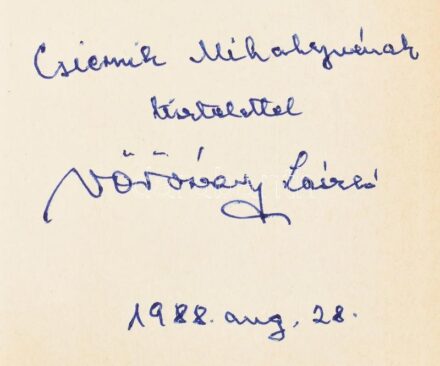 Csiernik Mihalynénak
tisztelettel
Vörösváry László
1988. aug. 28.